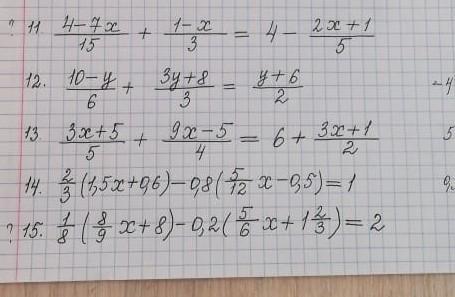 ? 11. (4-7x)/15 + (1-x)/3 = 4 - (2x+1)/5
12. (10-y)/6 + (3y+8)/3 = (y+6)/2 -4
13. (3x+5)/5 + (9x-5)/4 = 6 + (3x+1)/2 5
14. 2/3 (1,5x+0,6) - 0,8(5/12 x - 0,5) = 1
? 15. 1/8 (8/9 x + 8) - 0,2(5/6 x + 1 2/3) = 2